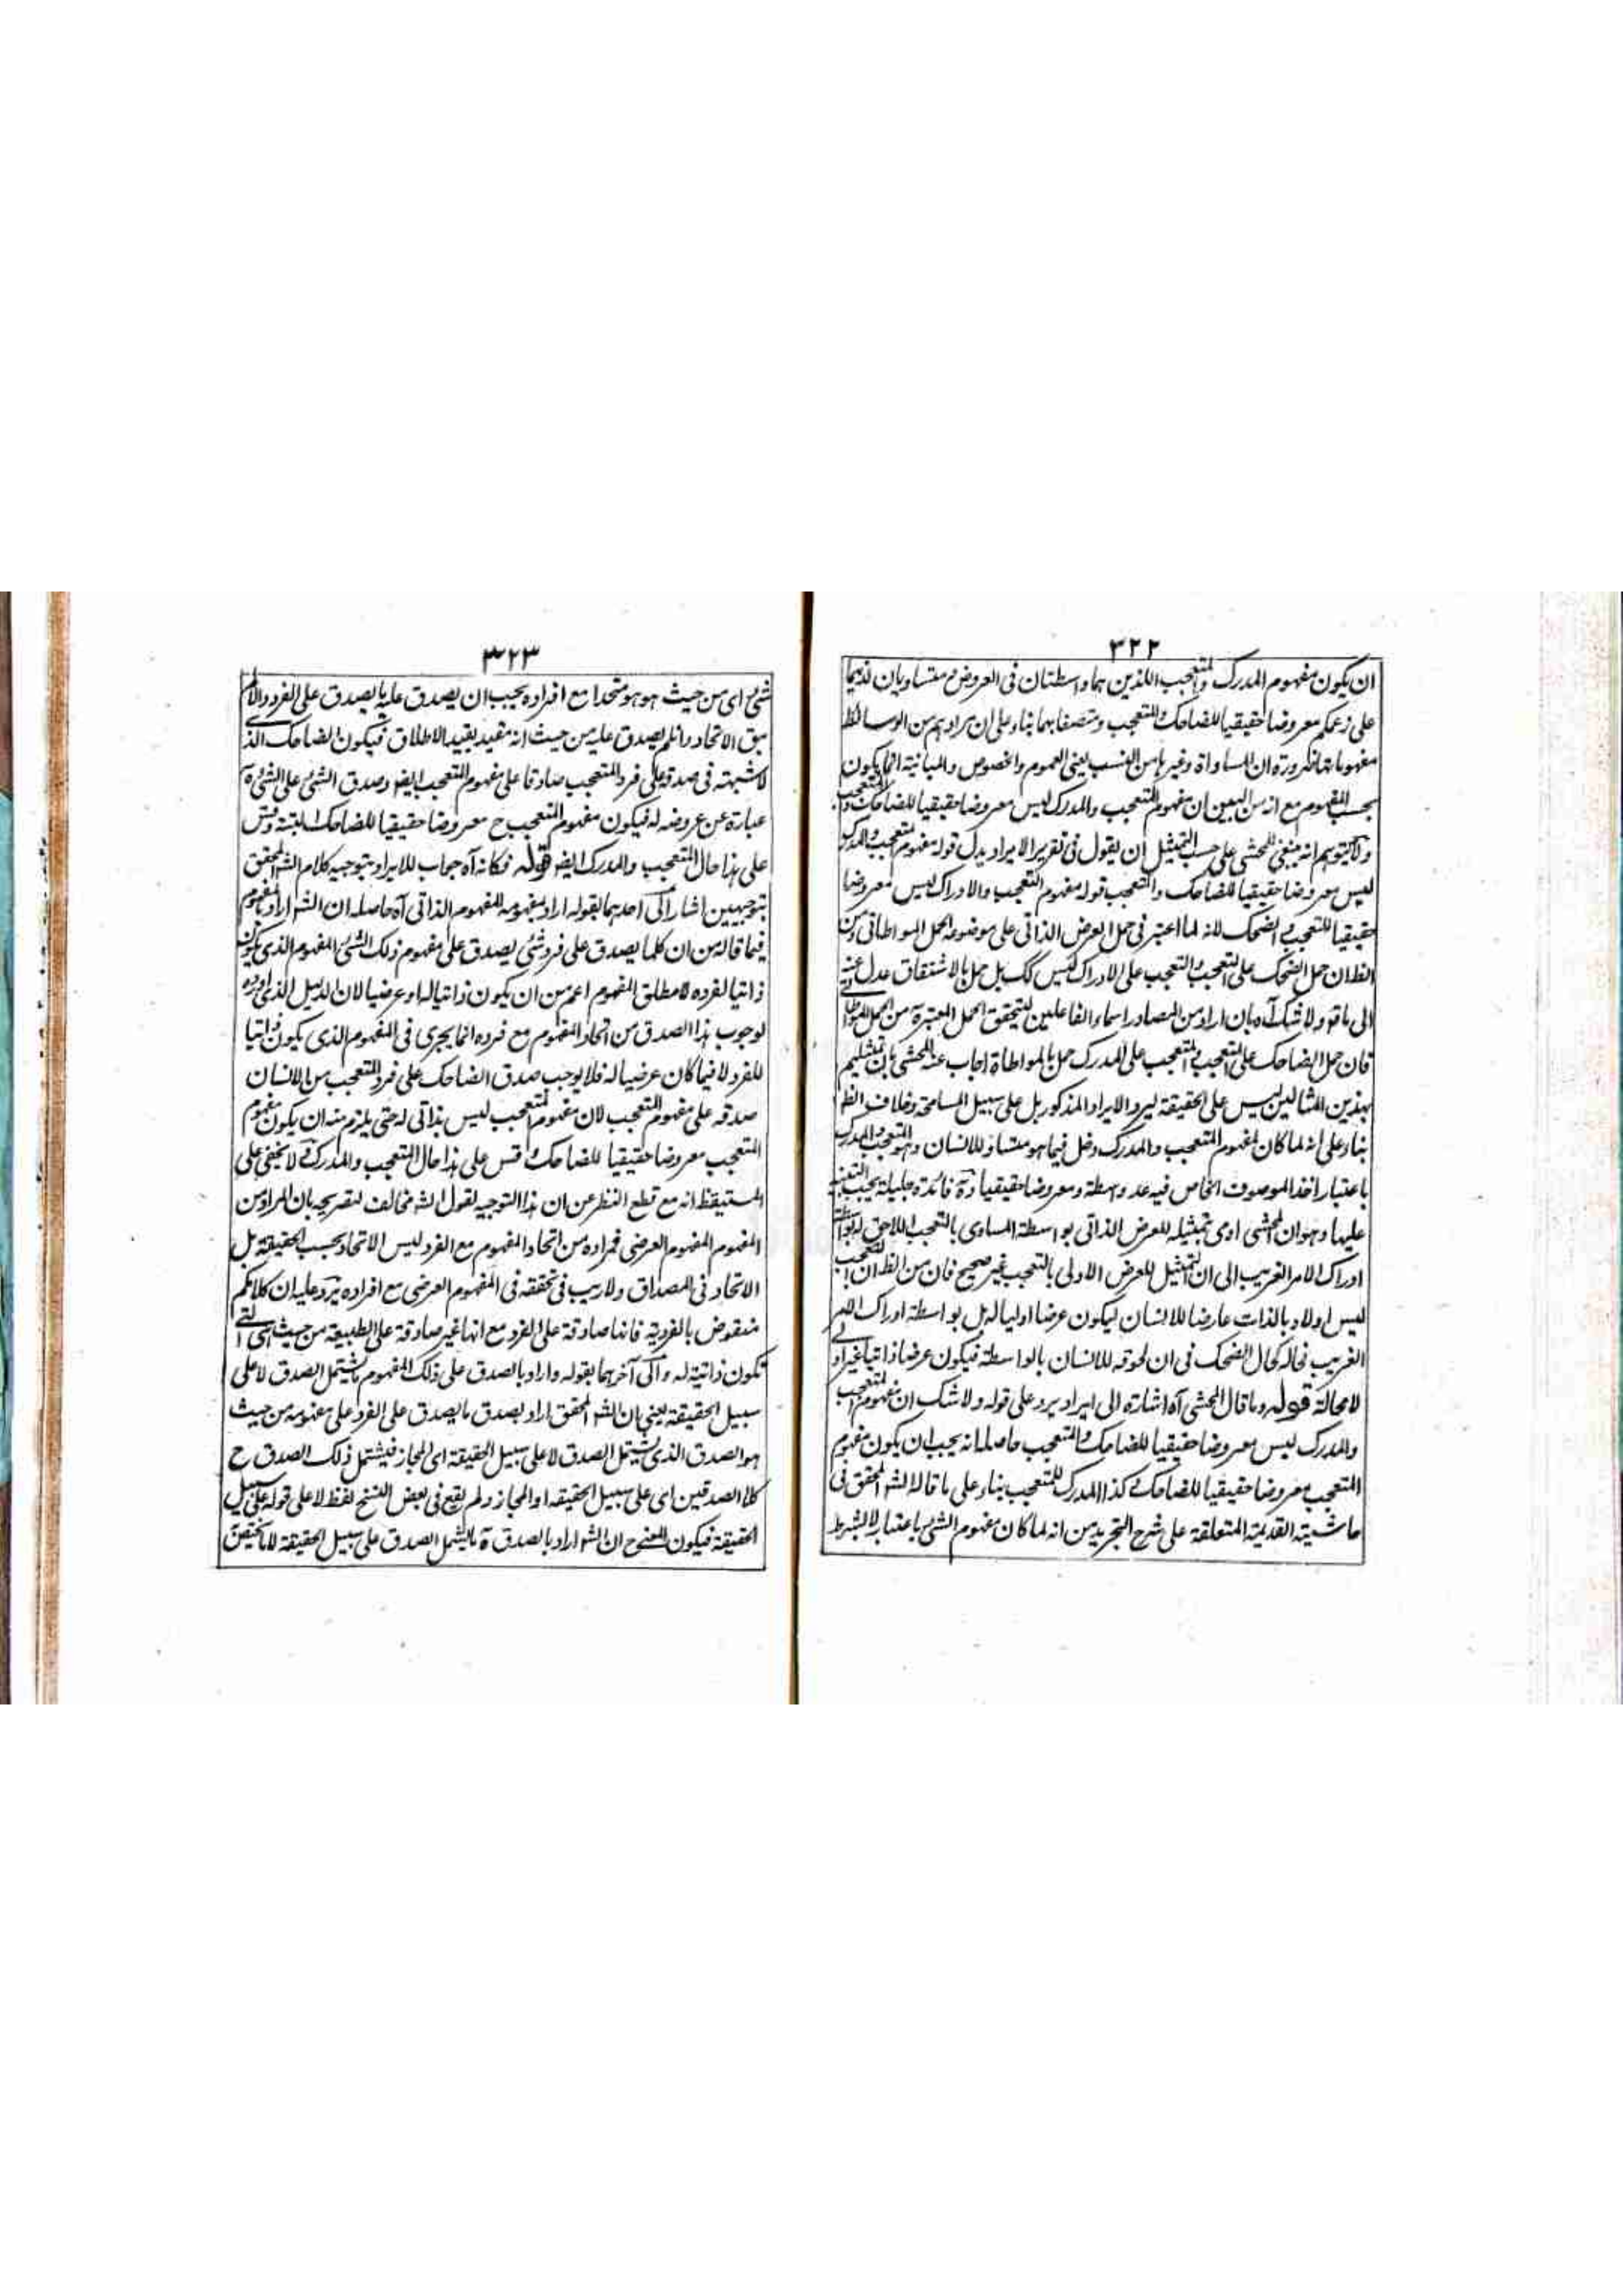 ٣٢٢
ان يكون مفهوم المدرك والمتعجب اللذين هما واسطتان في العروض متساويان لذيهما
على زعمكم معروضا حقيقيا للضاحك والمتعجب ومتصفا بهما بناء على ان مرادهم من الوسائط
مفهوماتها ضرورة ان المساواة وغيرها من النسب يعني العموم والخصوص والمباينة انما يكون
بحسب المفهوم مع انه من البين ان مفهوم المتعجب والمدرك ليس معروضا حقيقيا للضاحك والمتعجب
ولا يتوهم انه ينبغي للمحشي على حسب التمثيل ان يقول في تقرير الايراد بدل قوله مفهوم المتعجب والمدرك
ليس معروضا حقيقيا للضاحك والمتعجب قوله مفهوم التعجب والادراك ليس معروضا
حقيقيا للتعجب والضحك لانه لما اعتبر في حمل العرض الذاتي على موضوعه الحمل المواطاتي ومن
الظ ان حمل الضحك على التعجب والتعجب على الادراك ليس كك بل حمل بالاشتقاق عدل عنه
الى ما قه ولا شك آه بان اراد من المصادر اسماء الفاعلين ليتحقق الحمل المعتبرة من الحمل المواطاتي
فان حمل الضاحك على المتعجب والمتعجب على المدرك حمل بالمواطاة اجاب عنه المحشي بان تمثيلهم
بهذين المثالين ليس على الحقيقة ليرد الايراد المذكور بل على سبيل المسامحة وخلاف الظ
بناء على انه لما كان لمفهوم المتعجب والمدرك دخل فيما هو مساو للانسان وهو المتعجب والمدرك
باعتبار اخذ الموصوف الخاص فيه عد واسطة ومعروضا حقيقيا آه فائدة جليلة يجب التنبيه
عليها وهو ان المحشي اومى بتمثيله للعرض الذاتي بواسطة المساوي بالتعجب اللاحق له بواسطة
ادراك الامر الغريب الى ان التمثيل للعرض الاولى بالتعجب غير صحيح فان من الظ ان التعجب
ليس اولا وبالذات عارضا للانسان ليكون عرضا اوليا له بل بواسطة ادراك الامر
الغريب فحاله كحال الضحك في ان لحوقه للانسان بالواسطة فيكون عرضا ذاتيا غير اولي
لا محالة قوله وما قال المحشي آه اشارة الى ايراد يرد على قوله ولا شك ان مفهوم المتعجب
والمدرك ليس معروضا حقيقيا للضاحك والمتعجب حاصله انه يجب ان يكون مفهوم
المتعجب معروضا حقيقيا للضاحك وكذا المدرك للمتعجب بناء على ما قال الشه المحقق في
حاشيته القديمة المتعلقة على شرح التجريد من انه لما كان مفهوم الشئ باعتبار لا بشرط
٣٢٣
شئ اى من حيث هو هو متحدا مع افراده يجب ان يصدق عليه ما يصدق على الفرد والا لم
يبق الاتحاد وان لم يصدق عليه من حيث انه مقيد بقيد الاطلاق فيكون الضاحك الذي
لا شبهته في صدقه على فرد المتعجب صادقا على مفهوم المتعجب ايضا وصدق الشئ على الشئ ة
عبارة عن عروضه له فيكون مفهوم المتعجب ح معروضا حقيقيا للضاحك البتة وقس
على هذا حال المتعجب والمدرك ايضا قوله فكانه آه جواب للايراد بتوجيه كلام الشه المحقق
بتوجيهين اشار الى احدهما بقوله اراد بمفهومه المفهوم الذاتي آه حاصله ان الشه اراد بالمفهوم
فيما قاله من ان كلما يصدق على فرد شئ يصدق على مفهوم ذلك الشئ المفهوم الذي يكون
ذاتيا لفرده لا مطلق المفهوم اعم من ان يكون ذاتيا له او عرضيا لان الدليل الذي اورده
لوجوب هذا الصدق من اتحاد المفهوم مع فرده انما يجري في المفهوم الذي يكون ذاتيا
للفرد لا فيما كان عرضيا له فلا يوجب صدق الضاحك على فرد المتعجب من الانسان
صدقه على مفهوم المتعجب لان مفهوم المتعجب ليس بذاتي له حتى يلزم منه ان يكون مفهوم
المتعجب معروضا حقيقيا للضاحك وقس على هذا حال المتعجب والمدرك ولا يخفى على
المستيقظ انه مع قطع النظر عن ان هذا التوجيه لقول الشه مخالف لتصريحه بان المراد من
المفهوم المفهوم العرضي فمراده من اتحاد المفهوم مع الفرد ليس الاتحاد بحسب الحقيقة بل
الاتحاد في المصداق ولا ريب في تحققه في المفهوم العرضي مع افراده يرد عليه ان كلامكم
منقوض بالفردية فانها صادقة على الفرد مع انها غير صادقة على الطبيعة من حيث هي التي
تكون ذاتية له والى آخرهما بقوله واراد بالصدق على ذلك المفهوم ما يشتمل الصدق لا على
سبيل الحقيقة يعني بان الشه المحقق اراد بصدق ما يصدق على الفرد على مفهومه من حيث
هو الصدق الذي يشتمل الصدق لا على سبيل الحقيقة اى المجاز فيشتمل ذلك الصدق ح
كلا الصدقين اى على سبيل الحقيقة او المجاز ولم يقع في بعض النسخ لفظ لا على قوله على سبيل
الحقيقة فيكون المعنى ح ان الشه اراد بالصدق ة ما يشمل الصدق على سبيل الحقيقة لا ما يختص